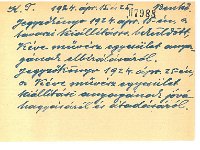 K. T. 1924. ápr. 12 és 25. Benkő
07988
Jegyzőkönyv 1924. ápr. 12-én, a
tavaszi kiállításra beküldött,
Kéve művész egyesület anya-
gának elbírálásáról.
Jegyzőkönyv 1924. ápr. 25-én,
a Kéve művész egyesület
kiállítási anyagának jóvá
hagyásáról és átadásáról.